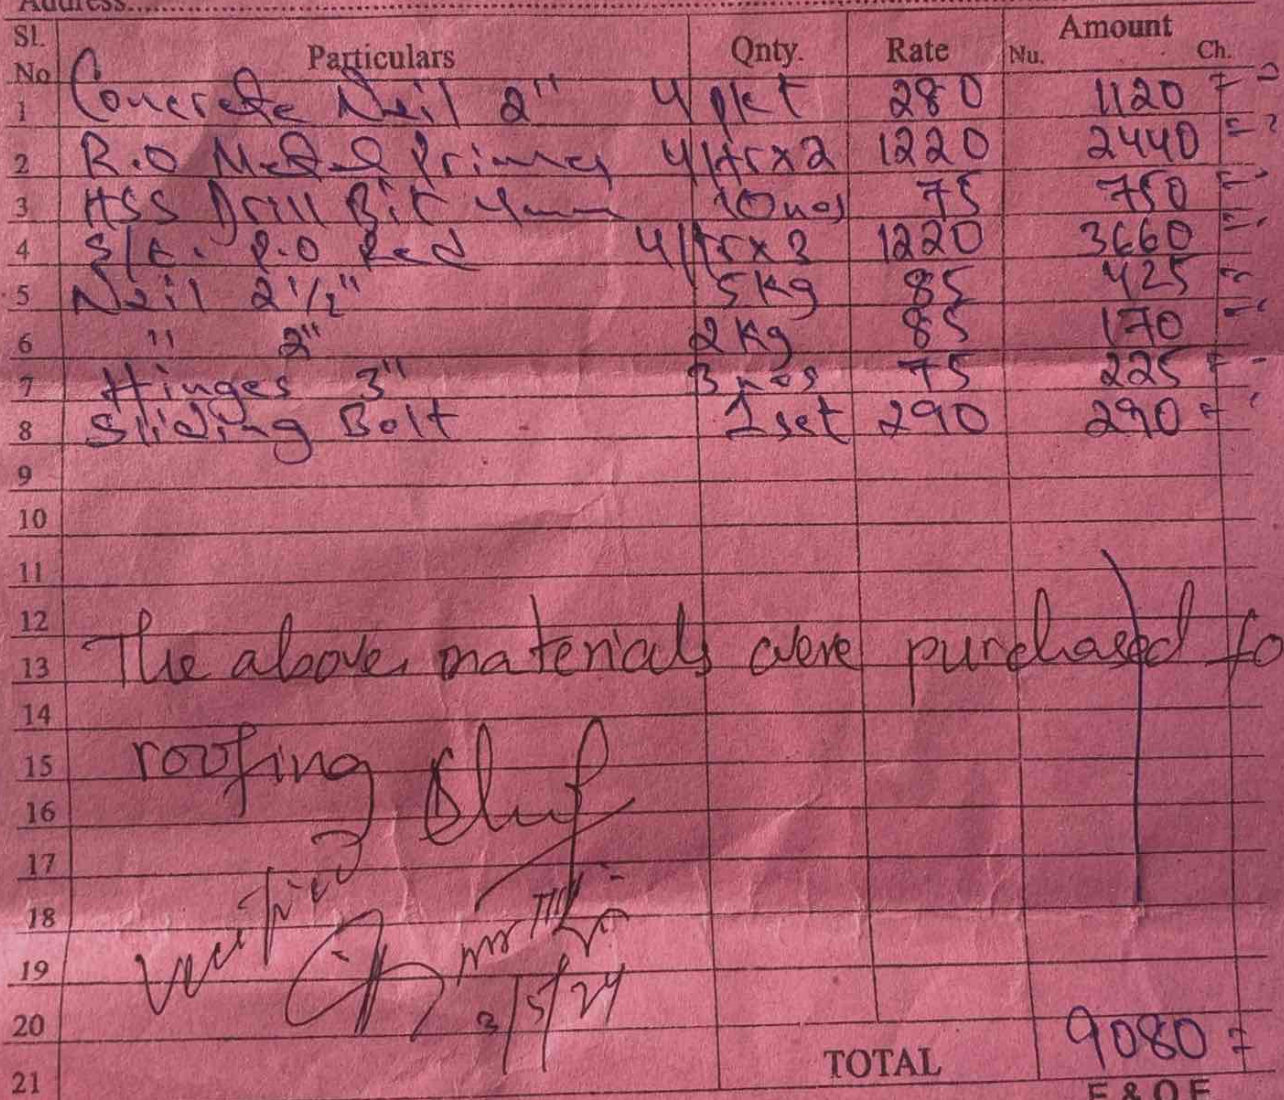 Address
Sl. No Particulars Qnty. Rate Amount Nu. Ch.
1 Concrete Neil 2" 4 pkt 280 1120
2 R.O Metal Primer 4 ltr x 2 1220 2440
3 HSS Drill Bit 4mm 10 nos 75 750
4 R.O Red 4 ltr x 3 1220 3660
5 Neil 2 1/2" 5 Kg 85 425
6 " 2" 2 Kg 85 170
7 Hinges 3" 3 nos 75 225
8 Sliding Bolt 1 set 290 290
9
10
11
12
13 The above materials were purchased fo
14
15 roofing
16
17
18 Verified
19
20 3/5/24
21 TOTAL 9080
E & O E